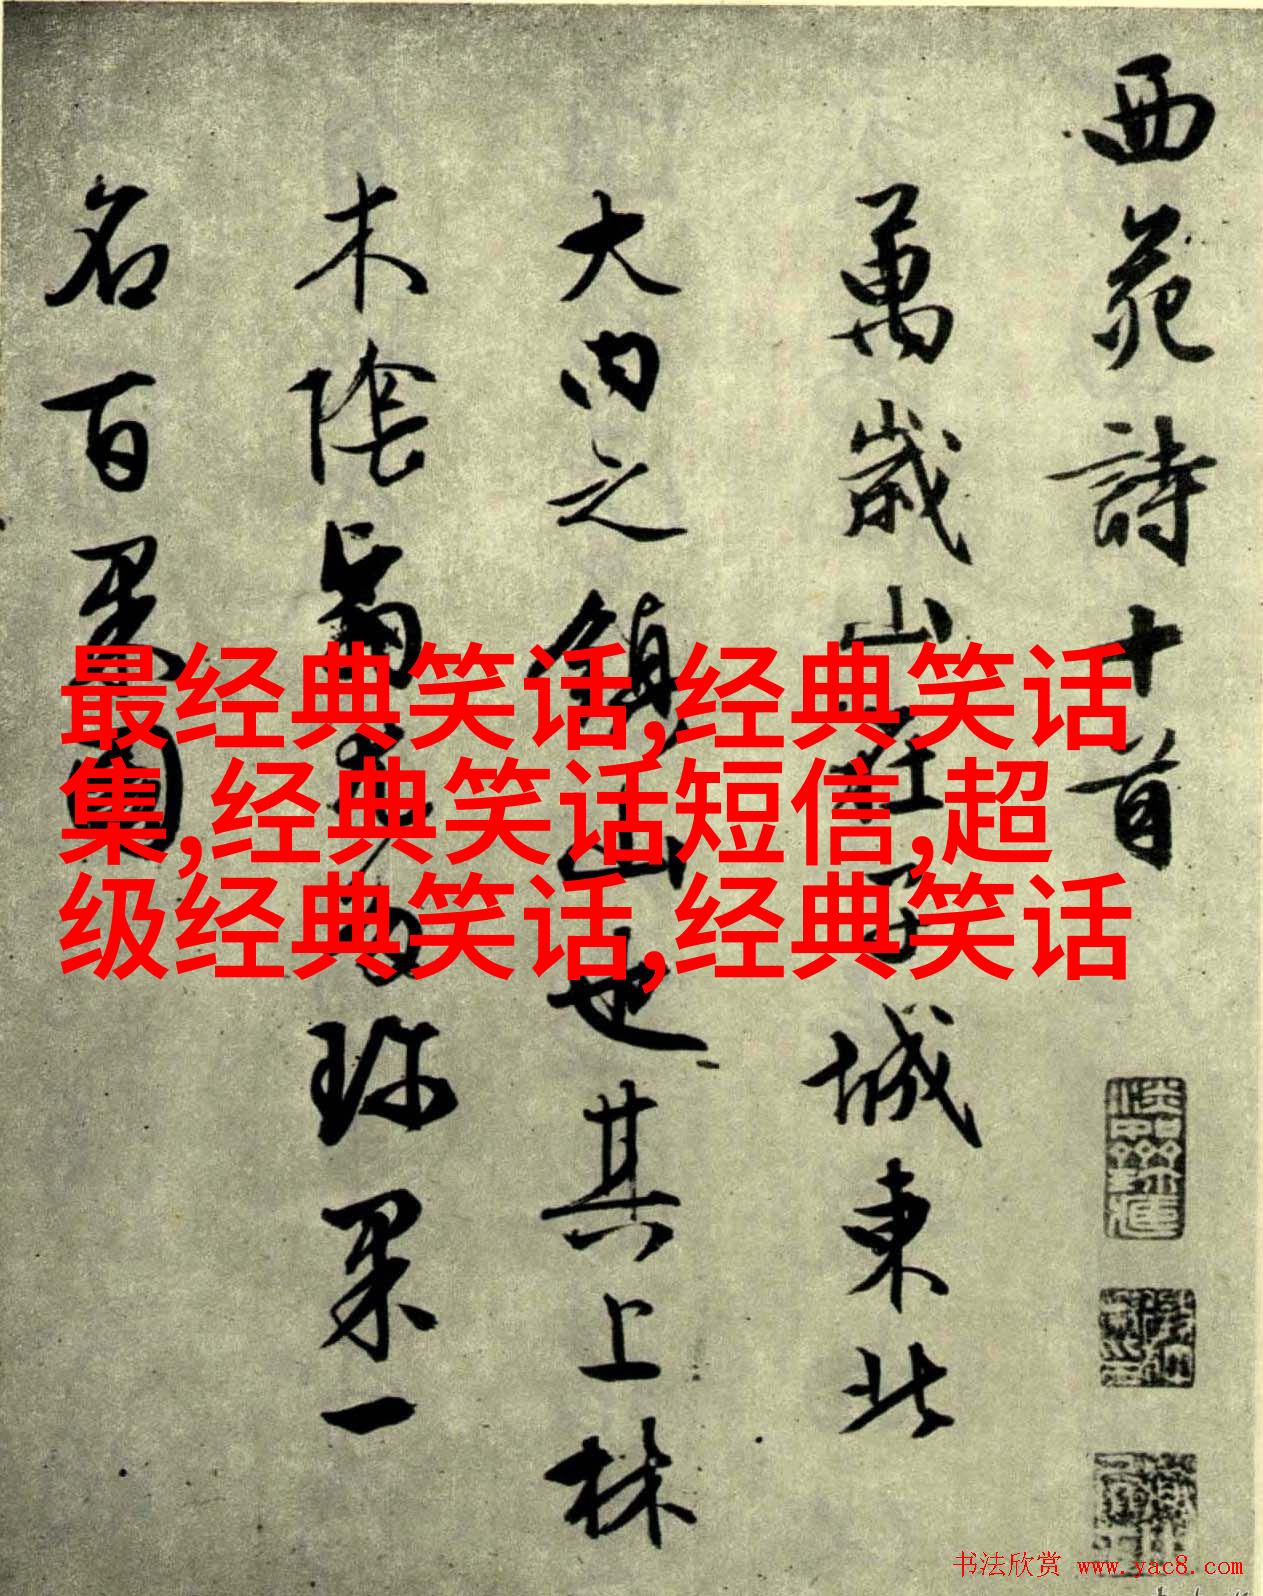 西苑詩十首
萬歲山在子城東北
大内之鎮山也其上林
木陰翳尤多珍果一
名百果園
最经典笑话,经典笑话
集,经典笑话短信,超
级经典笑话,经典笑话
书法欣赏 www.yac8.com